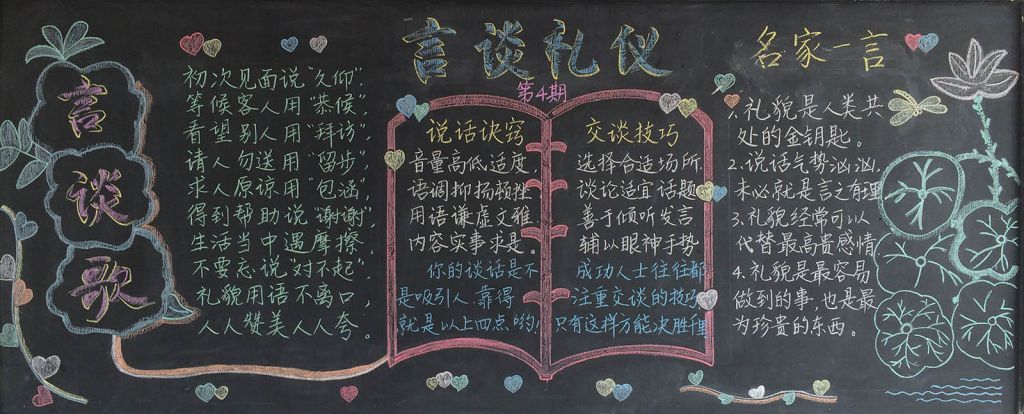 言谈礼仪
第4期
言谈歌
初次见面说"久仰",
等候客人用"恭候",
看望别人用"拜访",
请人勿送用"留步",
求人原谅用"包涵",
得到帮助说"谢谢",
生活当中遇摩擦,
不要忘说"对不起",
礼貌用语不离口,
人人赞美人人夸。
说话诀窍
音量高低适度,
语调抑扬顿挫.
用语谦虚文雅.
内容实事求是。
你的谈话是不
是吸引人.靠得
就是以上四点哟!
交谈技巧
选择合适场所.
谈论适宜话题.
善于倾听发言
辅以眼神手势.
成功人士往往都
注重交谈的技巧
只有这样方能决胜千里
名家一言
1.礼貌是人类共
处的金钥匙。
2.说话气势汹汹,
未必就是言之有理
3.礼貌经常可以
代替最高贵感情
4.礼貌是最容易
做到的事,也是最
为珍贵的东西。